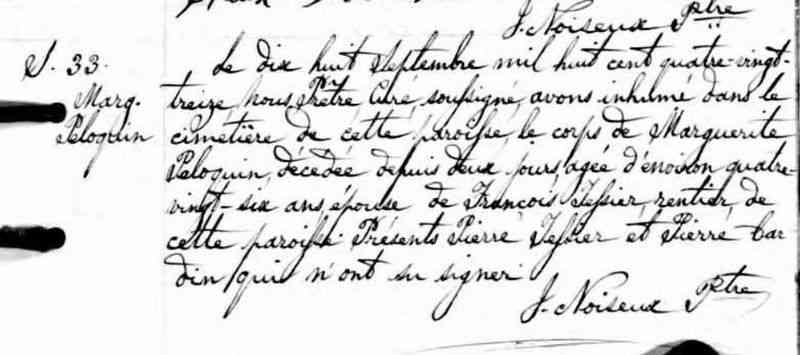 J. Noiseux Ptre
S. 33.
Marg.
Peloquin
Le dix huit Septembre mil huit cent quatre-vingt-
treize nous Prêtre Curé soussigné, avons inhumé dans le
cimetière de cette paroisse le corps de Marguerite
Peloquin, décédée depuis deux jours, agée d'environ quatre-
vingt-six ans, épouse de François Tessier, rentier, de
cette paroisse. Présents Pierre Tessier et Pierre Bar
din qui n'ont su signer
J. Noiseux Ptre